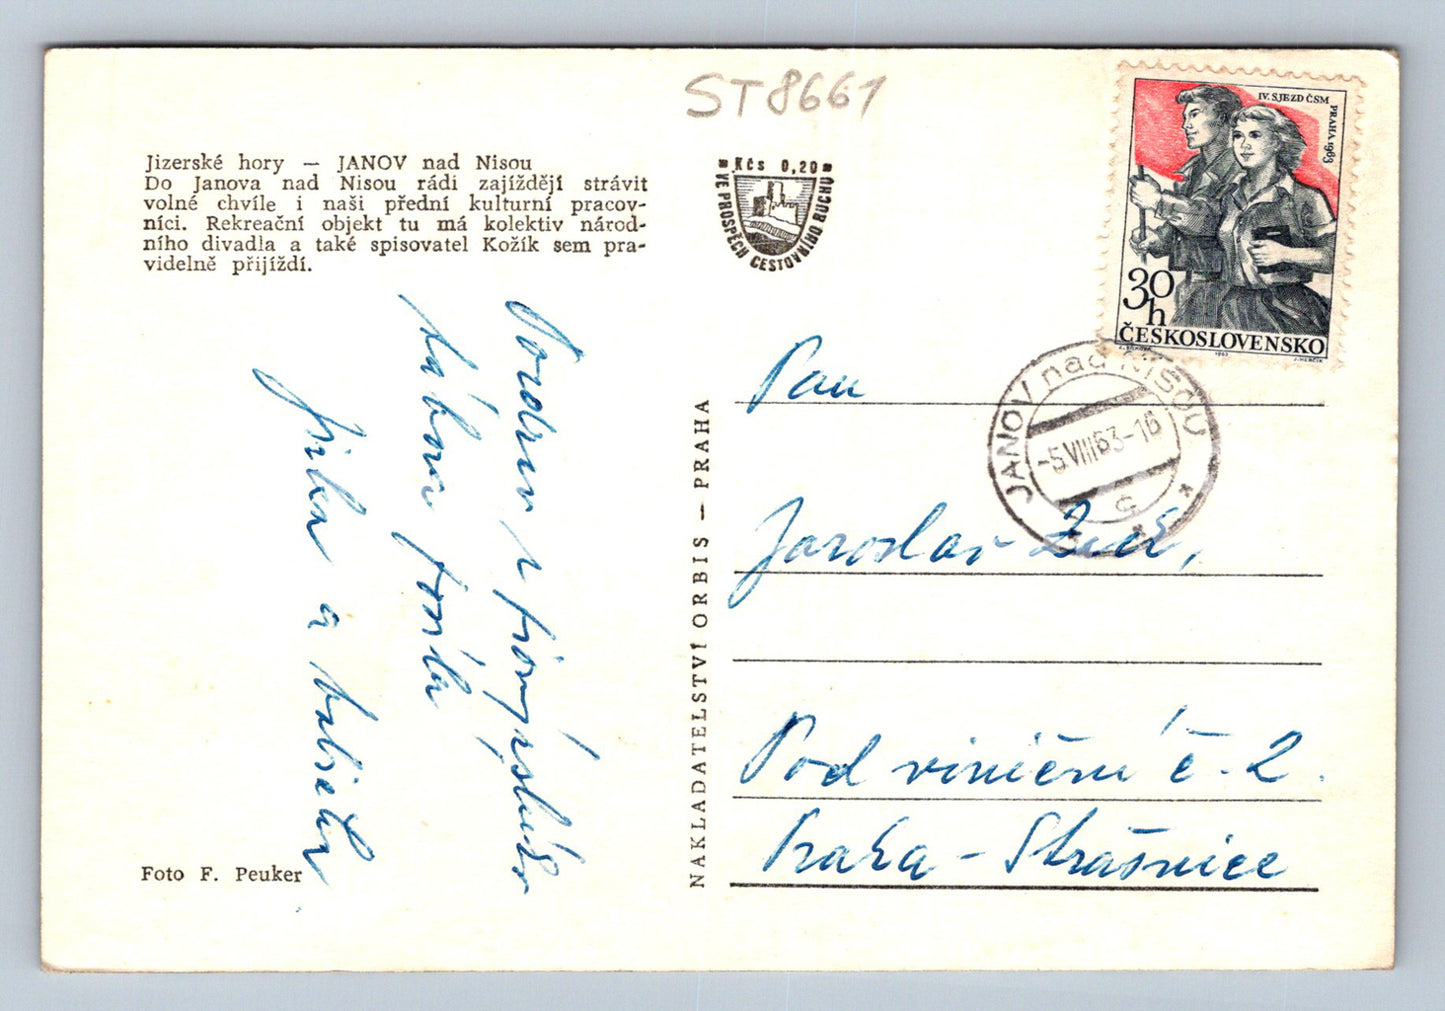 ST8661
Jizerské hory — JANOV nad Nisou
Do Janova nad Nisou rádi zajíždějí strávit
volné chvíle i naši přední kulturní pracov-
níci. Rekreační objekt tu má kolektiv národ-
ního divadla a také spisovatel Kožík sem pra-
videlně přijíždí.
Kčs 0,20
VE PROSPĚCH CESTOVNÍHO RUCHU
IV. SJEZD ČSM
PRAHA 1963
30
h
ČESKOSLOVENSKO
1963
JANOV nad NISOU
-5.VIII.63-16
Pozdrav z
tábora
Jirka a
NAKLADATELSTVÍ ORBIS — PRAHA
Pan
Jaroslav
Pod viniční č. 2.
Praha - Strašnice
Foto F. Peuker